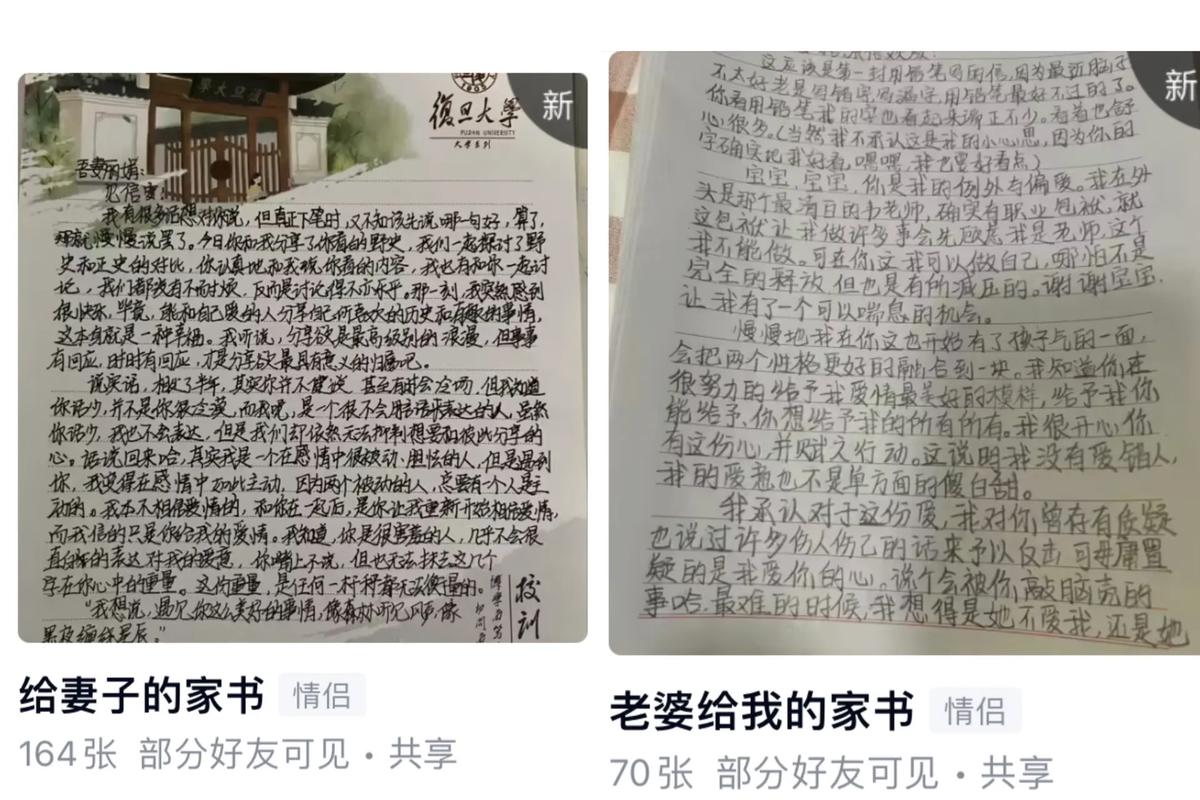 復旦大學
FUDAN UNIVERSITY
大学系列
新
吾妻丽娟:
见信安。
我有很多话想对你说，但真正下笔时，又不知该先说哪一句好，算了，
那就慢慢说罢了。今日你和我分享了你看的野史，我们一起探讨了野
史和正史的对比，你认真地和我说你看的内容，我也有和你一起讨
论，我们都没有不耐烦，反而是讨论得不亦乐乎。那一刻，我突然感到
很快乐，毕竟，能和自己爱的人分享自己所喜欢的历史和有趣的事情，
这本身就是一种幸福。我听说，分享欲是最高级别的浪漫，但事事
有回应，时时有回应，才是分享欲最具有意义的归宿吧。
说实话，相处了半年，其实你并不健谈，甚至有时会冷场，但我知道
你话少，并不是你很冷漠，而我呢，是一个很不会用话语表达的人，虽然
你话少，我也不会表达，但是我们却依然无法抑制想要和彼此分享的
心。话说回来哈，其实我是一个在感情中很被动、胆怯的人，但是遇到
你，我变得在感情中如此主动，因为两个被动的人，总要有一个人是主
动的。我本不相信爱情的，和你在一起后，是你让我重新开始相信爱情，
而我信的只是你给我的爱情。我知道，你是很害羞的人，几乎不会很
直白的表达对我的爱意，你嘴上不说，但也无法抹去这几个
字在你心中的重量。这份重量，是任何一杆秤都无法衡量的。
“我想说，遇见你这么美好的事情，像森林听见风声，像
黑夜缠绵星辰。”
校训
给妻子的家书 情侣
164张 部分好友可见·共享
新
这应该是第一封用铅笔写的信，因为最近脑子
不太好老是写错字写漏字，用铅笔最好不过的了。
你看用铅笔我的字也看起来端正不少。看着也舒
心很多。(当然我不承认这是我的小心思，因为你的
字确实比我好看，嘿嘿，我也要好看点)
宝宝，宝宝，你是我的例外与偏爱。我在外
头是那个最清白的书老师，确实有职业包袱，就
这包袱让我做许多事会先顾忌我是老师，这个
我不能做。可在你这我可以做自己，哪怕不是
完全的释放，但也是有所减压的。谢谢宝宝，
让我有了一个可以喘息的机会。
慢慢地我在你这也开始有了孩子气的一面，
会把两个性格更好的融合到一块。我知道你在
很努力的给予我爱情最美好的模样，给予我你
能给予，你想给予我的所有所有。我很开心，你
有这份心，并赋之行动。这说明我没有爱错人，
我的爱意也不是单方面的傻白甜。
我承认对于这份爱，我对你曾存有质疑
也说过许多伤人伤己的话来予以反击，可毋庸置
疑的是我爱你的心。说个会被你敲脑壳的
事哈，最难的时候，我想得是她不爱我，还是她
老婆给我的家书 情侣
70张 部分好友可见·共享